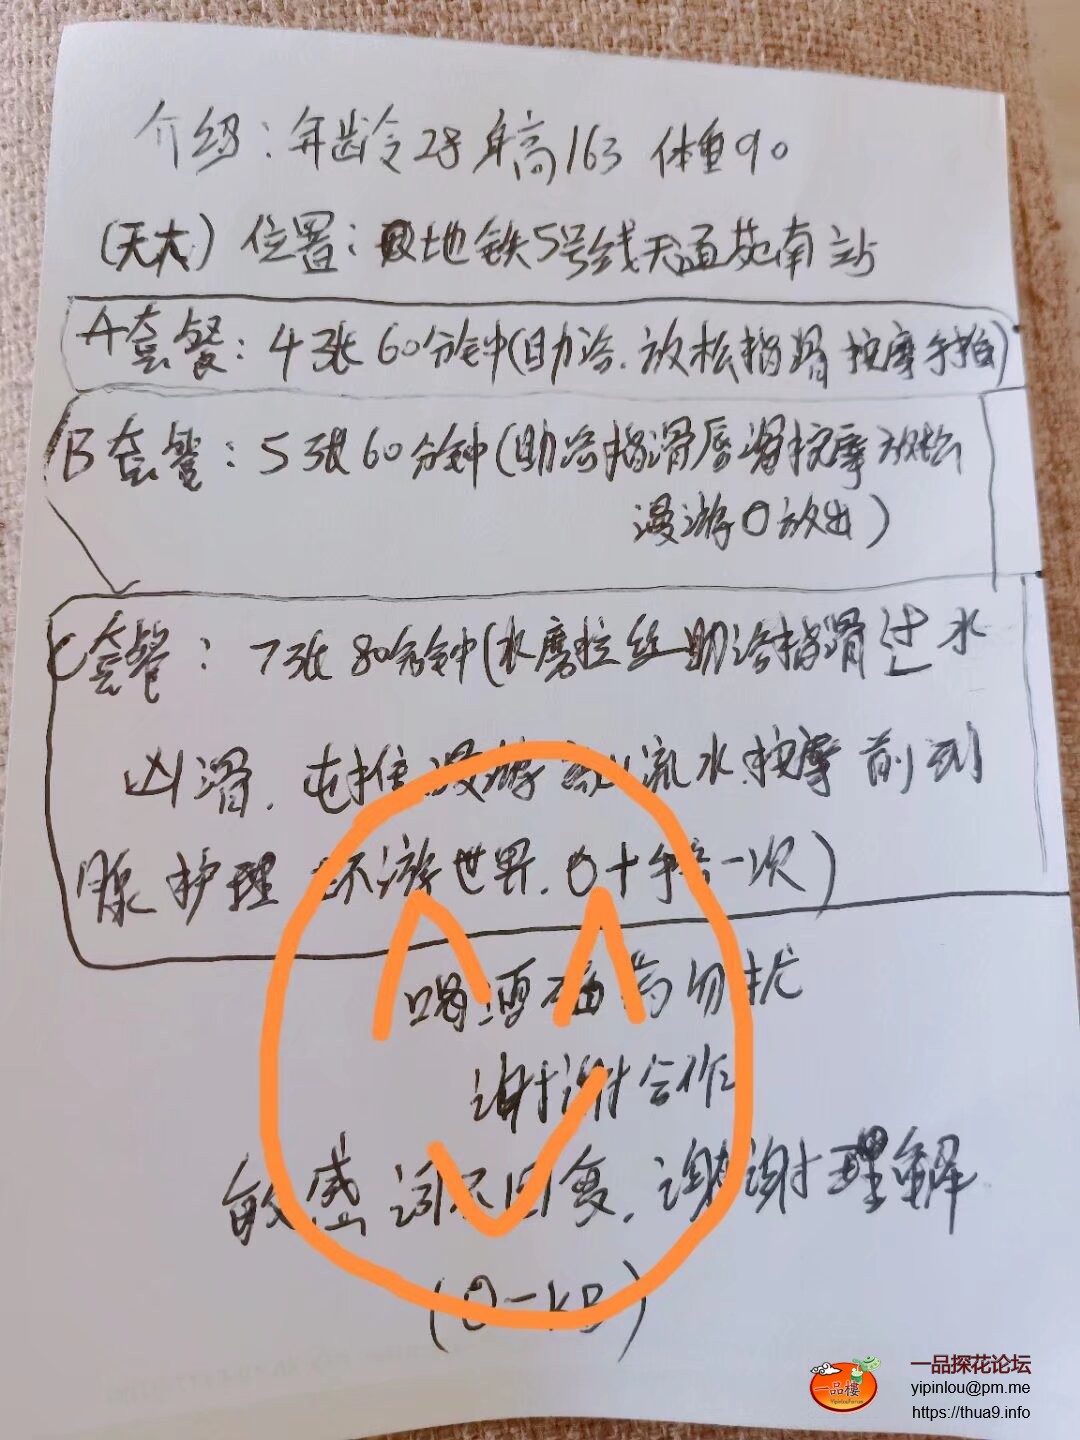 介绍：年龄28 身高163 体重90
(天大) 位置：地铁5号线天通苑南站
A套餐：4张60分钟(助浴.放松指滑按摩手拍)
B套餐：5张60分钟(助浴指滑唇滑按摩放松
漫游O放出)
C套餐：7张80分钟(水磨拉丝助浴指滑过水
凶滑.屯推漫游 流水.按摩前列
腺护理 环游世界.O+手 一次)
喝酒 药勿扰
谢谢合作
敏感词不回复.谢谢理解
(O-KB)
一品楼
一品探花论坛
yipinlou@pm.me
https://thua9.info